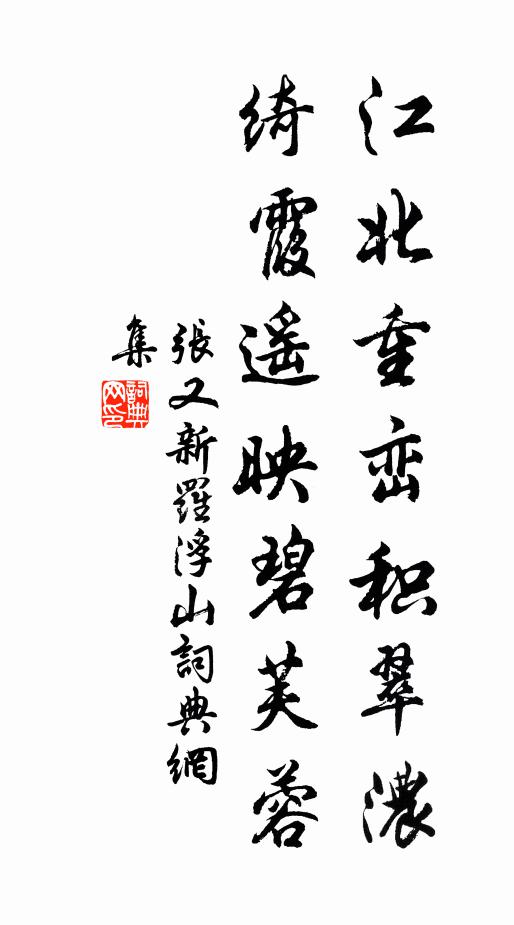 江北重峦积翠浓
绮霞遥映碧芙蓉
張又新羅浮山詞典網
集
詞典网印